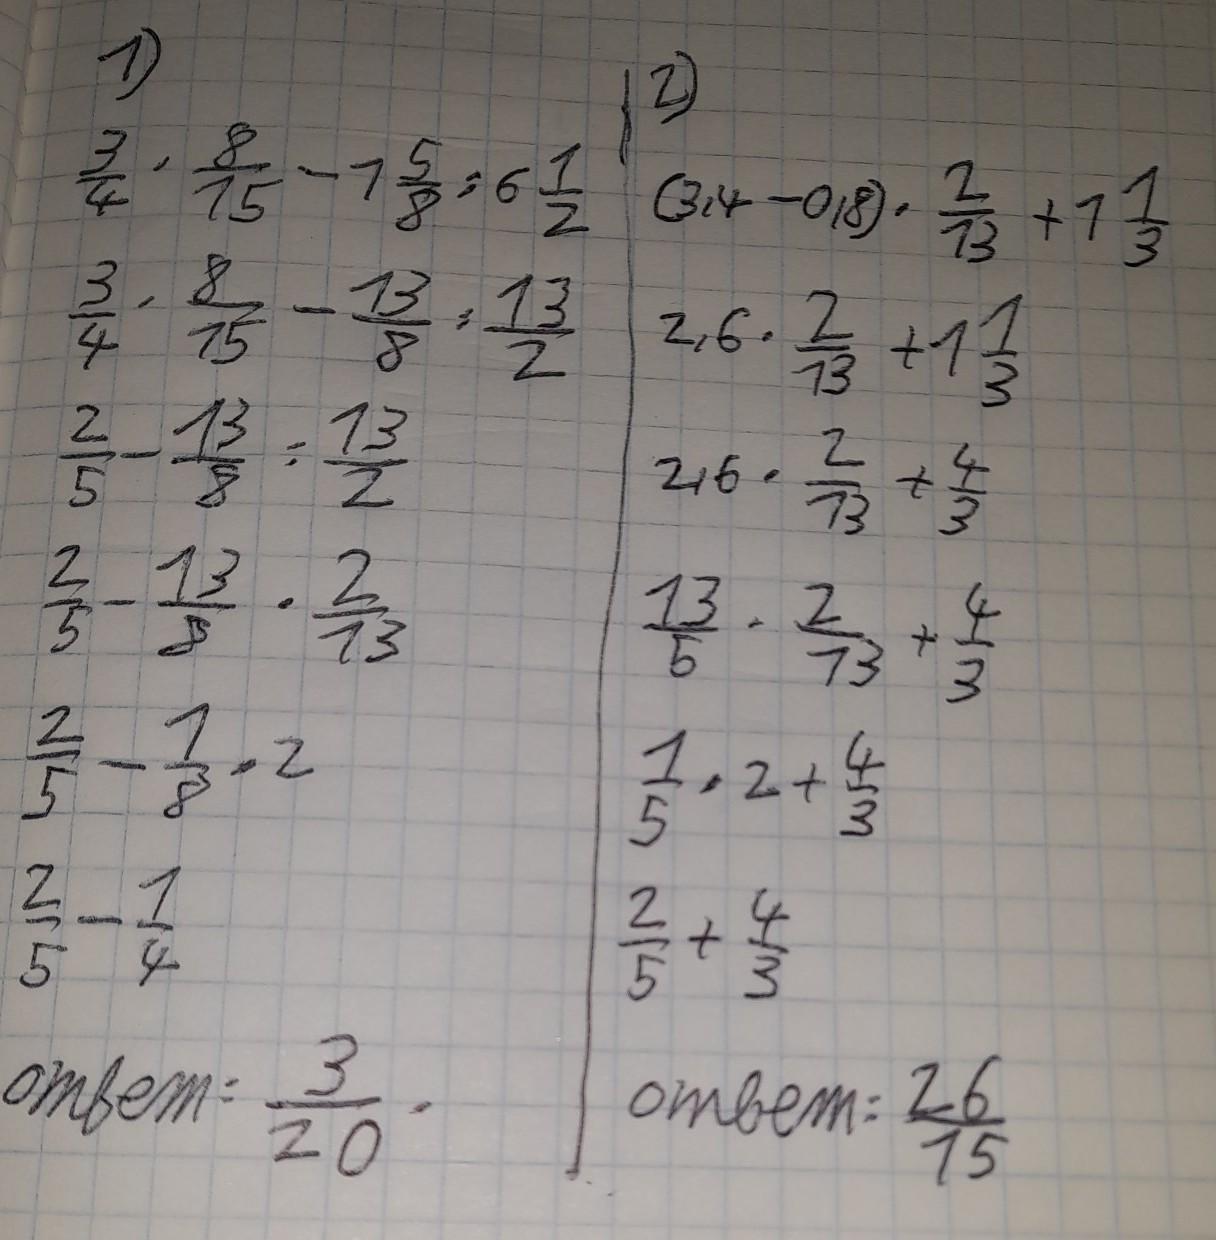 1)
3/4 · 8/15 - 1 5/8 : 6 1/2
3/4 · 8/15 - 13/8 : 13/2
2/5 - 13/8 : 13/2
2/5 - 13/8 · 2/13
2/5 - 1/8 · 2
2/5 - 1/4
ответ: 3/20.
2)
(3,4 - 0,8) · 2/13 + 1 1/3
2,6 · 2/13 + 1 1/3
2,6 · 2/13 + 4/3
13/5 · 2/13 + 4/3
1/5 · 2 + 4/3
2/5 + 4/3
ответ: 26/15